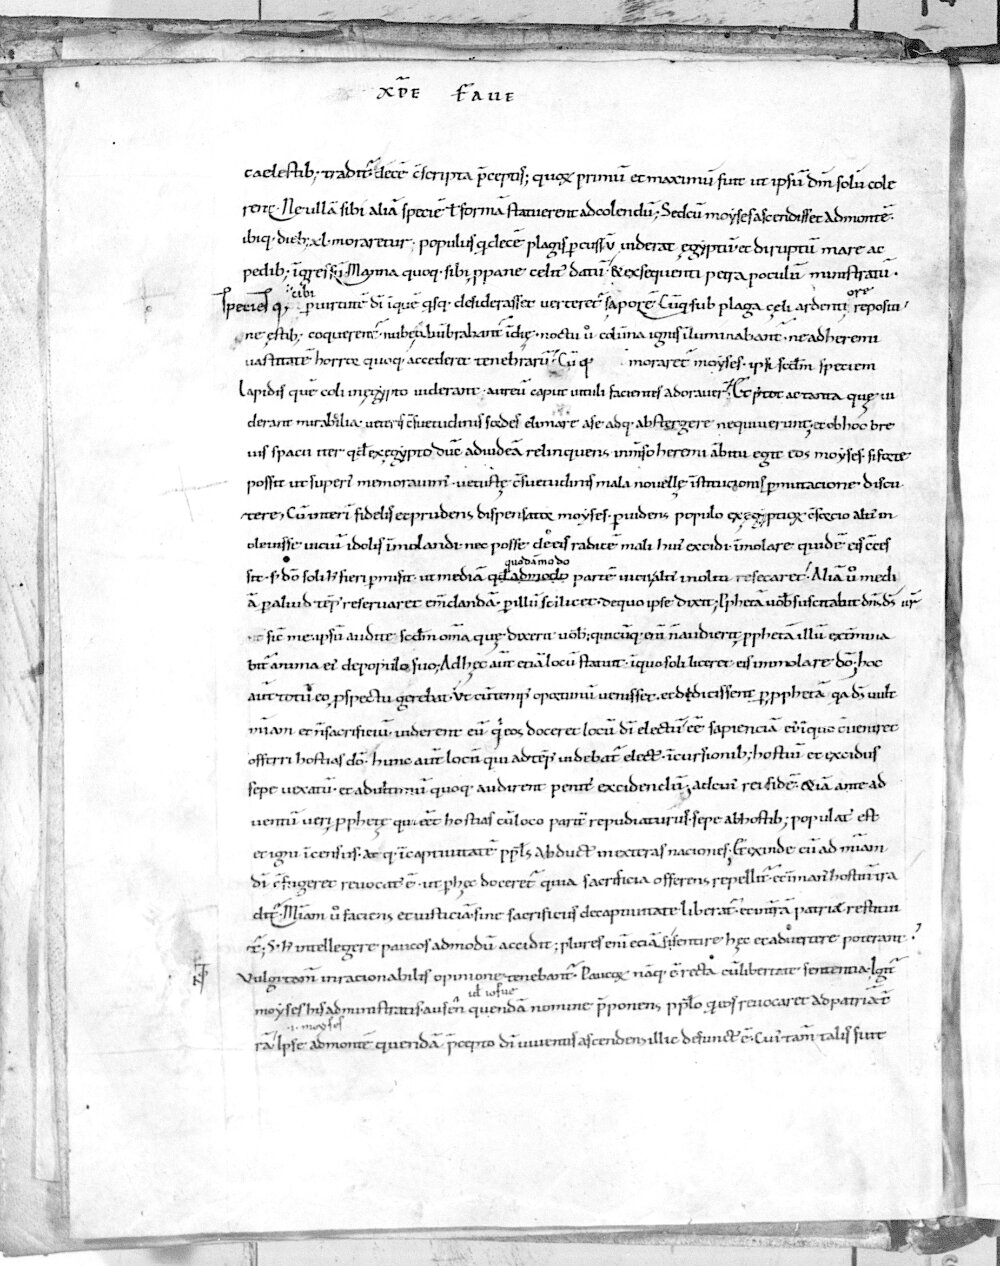 XPE FAVE
caelestib; tradit̄ decē c̄scripta p̄ceptis; quoꝝ primū et maximū fuit ut ipsū dm̄ solū cole
rent. Ne ullā sibi aliā speciē ł formā statuerent ad colendū; Sed cū moyses ascendisset ad montē.
ibiq. dieb; xl. moraretur. populus q decē plagis pcussū viderat egyptū et diruptū mare ac
pedib; īgressū. Manna quoq. sibi p pane celit datū. & exsequenti petra poculū ministratū.
species q; cibi p virtutē di ī quē qsq. desiderasset verteret saporē. Cūq sub plaga celi ardenti ore repositi
ne estib; coquerent̄. nubes ūbrabant ī die. noctu ů colūna ignis illuminabant̄. ne adherenti
vastitate horror quoq. accederet tenebrarū. Cū q moraret̄ moyses. ipsi scdm̄ speciem
lapidis quē coli in egypto viderant. aureū caput vituli facientes adoraver̄. Et p tot ac tanta que vi
derant mirabilia. veteris c̄suetudinis sordes elimare a se adq. abstergere nequiverunt, et ob hoc bre
vis spacii iter qd ex egypto duc̄ ad iudeā relinquens inmēso heremi ābitu egit eos moyses. si forte
possit ut superi memoravim̄. vetuste c̄suetudinis mala novelle īstitucionis pmutacione discu
tere; Cū interi fidelis et prudens dispensator moyses. pvidens populo ex egyptioꝝ c̄sorcio alti in
olevisse viciū idolis īmolandi nec posse de eis radicē mali hui excidi. īmolare quidē eis c̄ces
sit. s; dō soli h̄ fieri pmisit. ut mediā quodāmodo partē vicii alti inoliti resecaret. Aliā ů medi
ā p aliud tēp reservaret em̄dandā. p illū scilicet. de quo ipse dixit; Prophetā vob suscitabit dn̄s ds̄ vr̄
ut sic me. ipsū audite scdm̄ om̄a que dixerit vob; quicūq. eni n̄ audierit pphetā illū extmina
bit̄ anima ei de populo suo; Ad hec aut̄ etiā locū statuit. ī quo soli liceret eis immolare dō; hoc
aut̄ totū eo pspectu gerebat. Ut cū temp oportunū venisset. et didicissent p pphetā q̄a ds̄ vult
miam et n̄ sacrificiū. viderent eū q eos doceret locū di electū eē sapienciā ei ī quo c̄veniret
offerri hostias dō. hunc aut̄ locū qui ad tēp videbat̄ elect. īcursionib; hostiū et excidiis
sepe vexatū. et ad ultimū quoq. audirent penit̄ excidendū; ad cui rei fidē. & iā ante ad
ventū veri pphete qui erat hostias cū loco parit repudiaturus. sepe ab hostib; populat̄ est
et igni īcensus. at q. ī captivitatē ppls abduct in exteras naciones. Et exinde cū ad miam
di c̄fugeret revocat ē. ut p hec doceret̄ quia sacrificia offerens repellit̄. et ī man hostiū tra
dit̄. Miam ů faciens et iusticiā. sine sacrificiis de captivitate liberat̄. et in trā patriā restitui
t̄; S; h̄ intellegere paucos admodū accidit; plures eni etiā si sentire hec et advertere poterant.
Vulgi tam̄ inracionabilis opinione tenebant̄. Paucoꝝ nāq. ē recta cū libertate sententia. Igit̄
ul iosue
moyses his administratis. ausen̄ quendā nomine p̄ponens pplo. q eos revocaret ad patriā t̄
.i. moyses
rā. Ipse ad montē quendā p̄cepto di viventis ascendens illic defunct ē. Cui tam̄ talis fuit